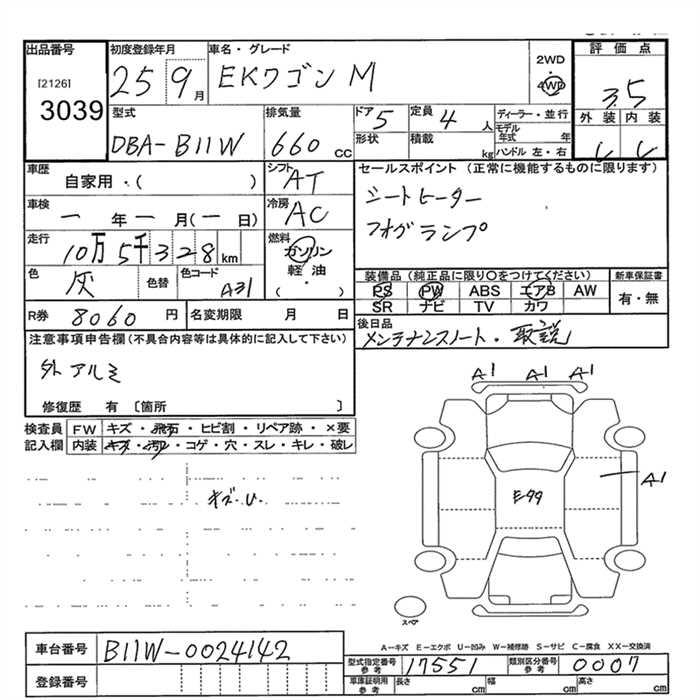 出品番号 初度登録年月 車名・グレード 評価点
[2126] 3039 25 9月 EKワゴン M 2WD 4WD 3.5
型式 排気量 ドア 5 定員 4人 ディーラー・並行 外装 内装
DBA-B11W 660 CC 形状 積載 kg モデル年式 年 ハンドル 左・右 C C
車歴 自家用・( ) シフト AT セールスポイント(正常に機能するものに限ります)
車検 一年一月(一日) 冷房 AC シートヒーター
走行 10万5千328km 燃料 ガソリン フォグランプ
軽油
( ・ )
色 灰 色替 色コード A31 装備品(純正品に限り○をつけてください) 新車保証書
PS PW ABS エアB AW 有・無
SR ナビ TV カワ
R券 8060円 名変期限 月 日 後日品
メンテナンスノート・取説
注意事項申告欄(不具合内容等は具体的に記入して下さい)
外アルミ
修復歴 有 〔箇所 〕
検査員 FW キズ・飛石・ヒビ割・リペア跡・×要
記入欄 内装 キズ・汚れ・コゲ・穴・スレ・キレ・破レ
キズ・U・
A1 A1 A1
A1
E-99
スペア
A-キズ E-エクボ U-凹み W-補修跡 S-サビ C-腐食 XX-交換済
車台番号 B11W-0024142 型式指定番号 参考 17551 類別区分番号 参考 0007
登録番号 車庫証明用 参考 長さ cm 幅 cm 高さ cm